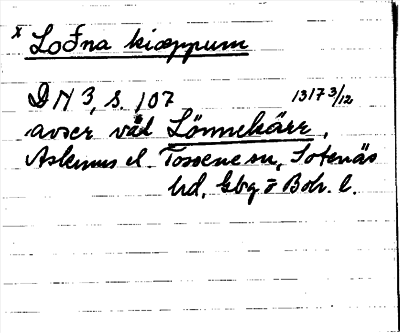 x Lofna kiæppum
DN 3, s. 107 1317 3/12
avser väl Lönnekärr,
Askums el. Tossene sn, Sotenäs
hd, Gbg o Boh. l.